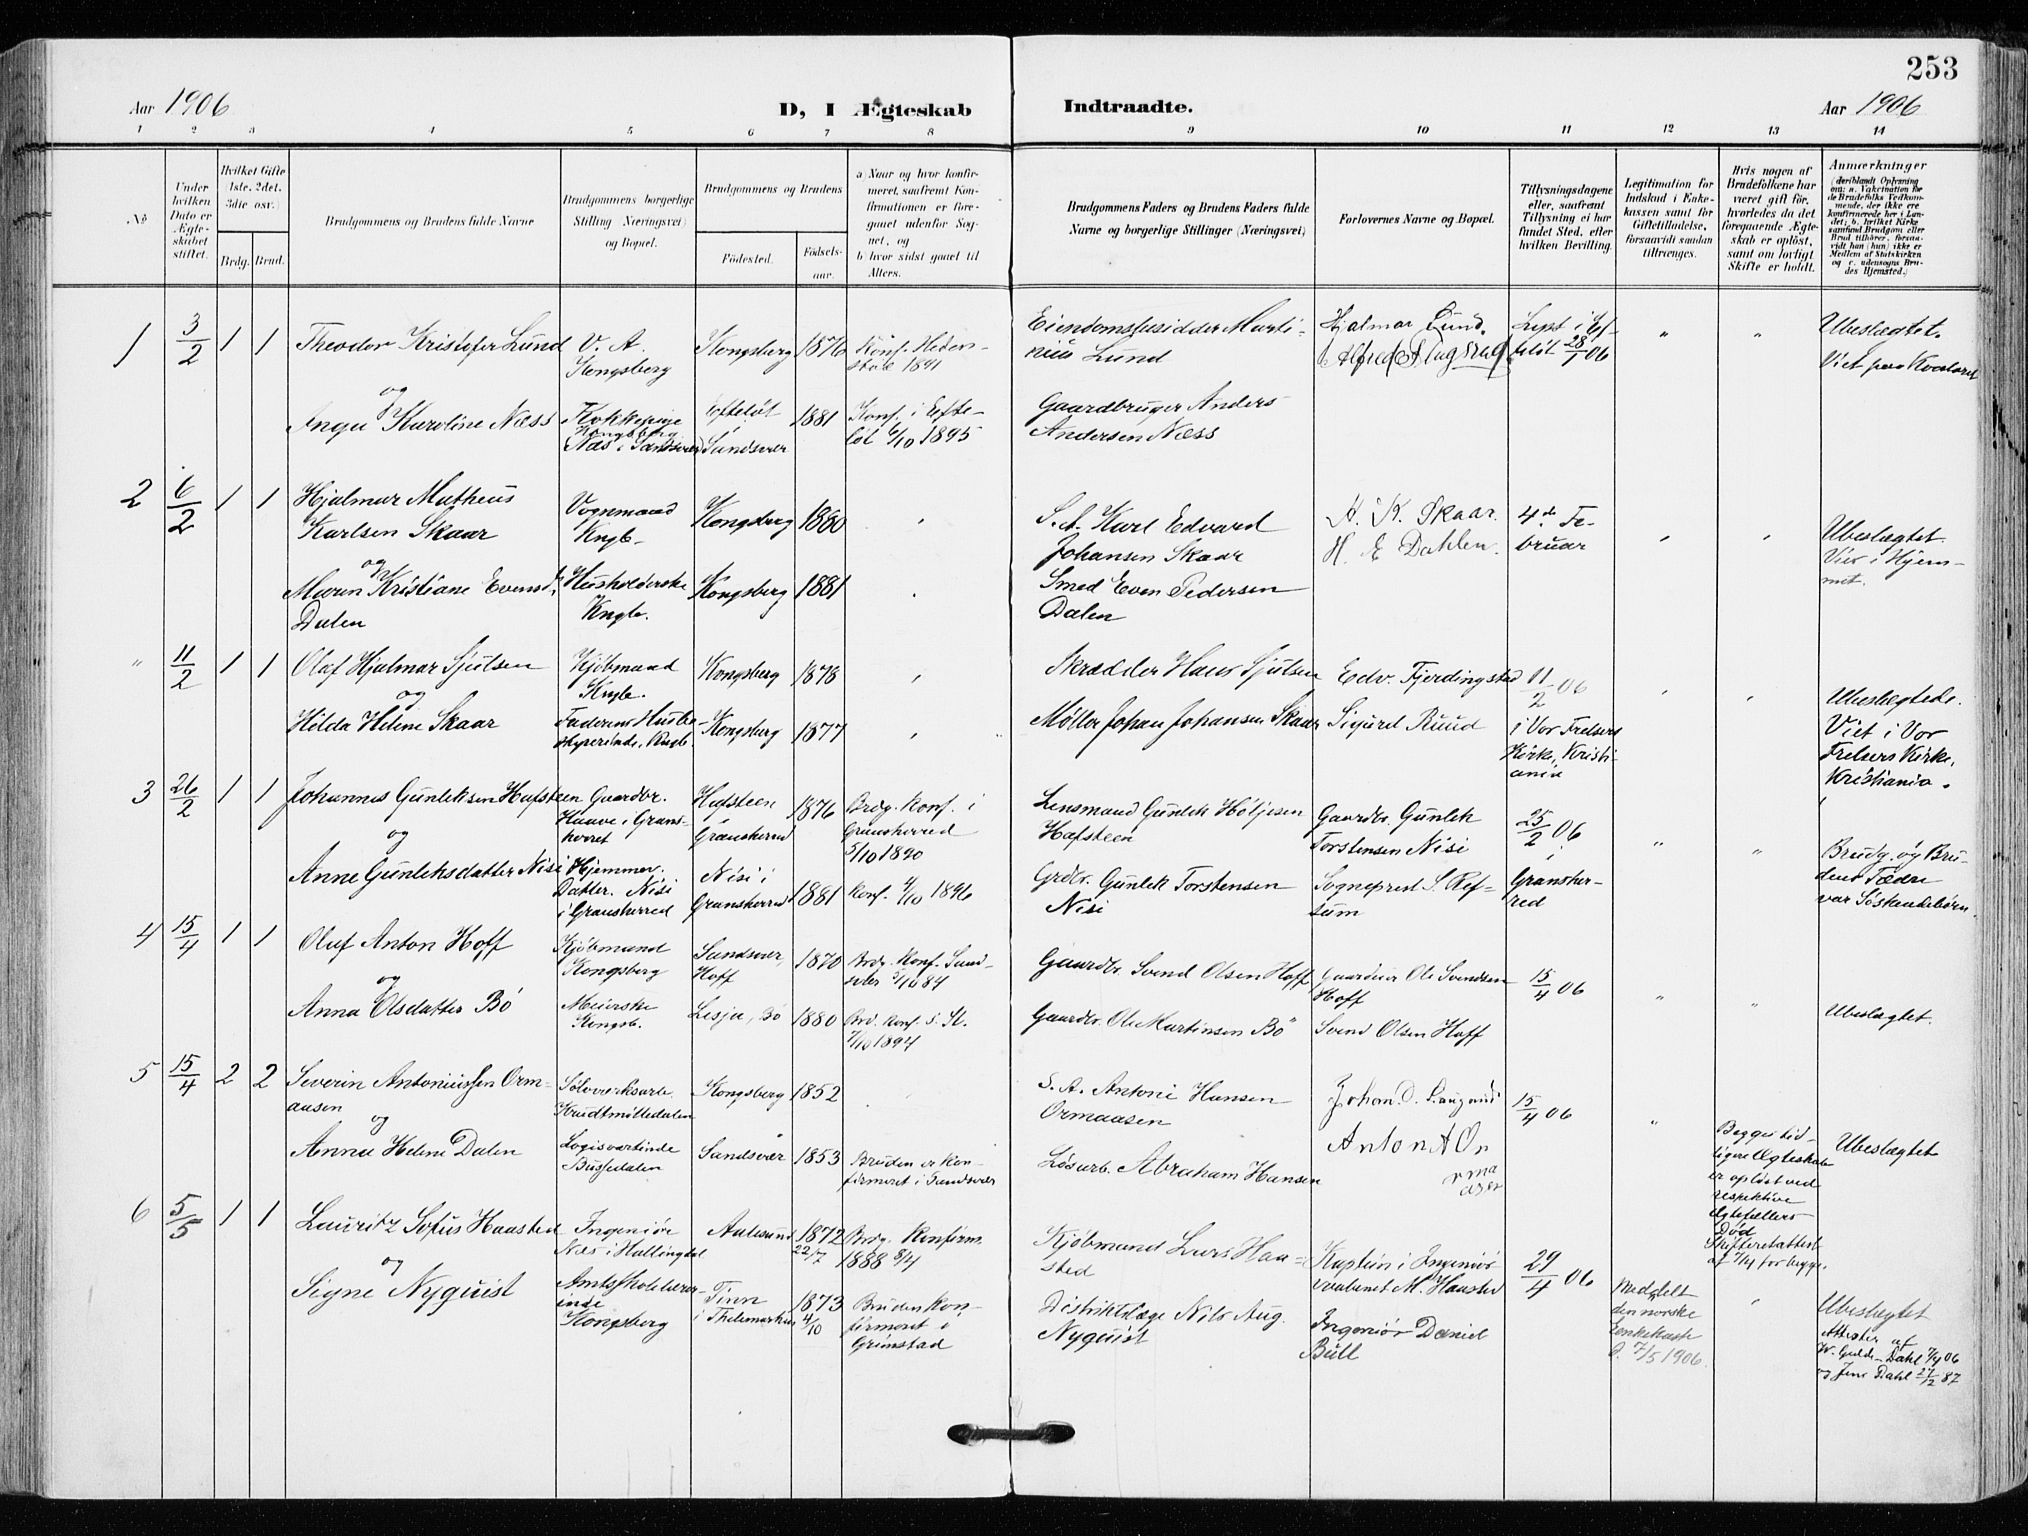 253
Aar 1906
D, I Ægteskab
Indtraadte.
Aar 1906
1 2 3 4 5 6 7 8 9 10 11 12 13 14
No
Under hvilken Dato er Ægteskabet stiftet.
Hvilket Gifte (1ste. 2det. 3die osv.)
Brdg. Brud.
Brudgommens og Brudens fulde Navne
Brudgommens borgerlige Stilling (Næringsvei) og Bopæl.
Brudgommens og Brudens
Fødested.
Fødselsaar.
a) Naar og hvor konfirmeret, saafremt Konfirmationen er foregaaet udenfor Sognet, og
b) hvor sidst gaaet til Alters.
Brudgommens Faders og Brudens Faders fulde Navne og borgerlige Stillinger (Næringsvei)
Forlovernes Navne og Bopæl.
Tillysningsdagene eller, saafremt Tillysning ei har fundet Sted, efter hvilken Bevilling.
Legitimation for Indskud i Enkekassen samt for Giftetilladelse, forsaavidt saadan tiltrænges.
Hvis nogen af Brudefolkene har været gift før, hvorledes da det foregaaende Ægteskab er opløst, samt om lovligt Skifte er holdt.
Anmærkninger
(deriblandt Oplysning om: a. Vakcination for de Brudefolks Vedkommende, der ikke ere konfirmerede her i Landet; b. hvilket Kirkesamfund Brudgom eller Brud tilhører, forsaavidt han (hun) ikke er Medlem af Statskirken og c. udensogns Brudes Hjemsted.)
1 3/2 1 1 Theodor Kristofer Lund
V. A. Kongsberg
Kongsberg 1876
Konf. Hedenstad 1891
Eiendomsbesidder Martinius Lund
Hjalmar Lund.
Lyst i Efteløt 28/1 06
" "
Ubeslægtet.
Viet paa
og
Inga Karoline Næss
Kokkepige Kongsberg
Næs i Sandsvær
Efteløt Sandsvær 1881
Konf. i Efteløt 6/10 1895
Gaardbruger Anders Andersen Næss
2 6/2 1 1 Hjalmar Matheus Karlsen Skaar
Vognmand Kngb.
Kongsberg 1880
S. A. Karl Edvard Johansen Skaar
A. K. Skaar.
H. E Dahlen.
4de Februar
Ubeslægtet.
Viet i Hjemmet.
og
Maren Kristiane Evensd. Dalen
Husholderske Kngb.
Kongsberg 1881
Smed Even Pedersen Dalen
" 11/2 1 1 Olaf Hjalmar Sjulsen
Kjøbmand Kngb.
Kongsberg 1878
Skrædder Hans Sjulsen
Edv. Fjerdingstad
11/2 06
i Vor Frelsers Kirke, Kristiania
Ubeslægtede.
Viet i Vor Frelsers Kirke, Kristiania.
og
Hilda Helene Skaar
Faderens Husbestyrerinde, Kngb.
Kongsberg 1877
Møller Johan Johansen Skaar
Sigurd Ruud
3 26/2 1 1 Johannes Gunleksen Hafsteen
Gaardbr. Haave i Gransherred
Hafsteen Gransherred 1876
Brdg. konf. i Gransherred 5/10 1890
Lensmand Gunlek Høljesen Hafsteen
Gaardbr. Gunlek Torstensen Nisi
25/2 06 i Gransherred
" "
Brudg. og Brudens Fædre var Søskendebørn.
og
Anne Gunleksdatter Nisi
Hjemmev. Datter. Nisi i Gransherred
Nisi i Gransherred 1881
konf. 4/10 1896
Grdbr. Gunlek Torstensen Nisi
Sogneprest S. Refsum
4 15/4 1 1 Olaf Anton Hoff
Kjøbmand Kongsberg
Sandsvær, Hoff 1870
Brdg. konf. Sandsvær 5/10 84
Gaardbr. Svend Olsen Hoff
Gaardeier Ole Svendsen Hoff
15/4 06
" "
Ubeslægtet.
og
Anna Olsdatter Bö
Meierske Kongsb.
Lesja, Bö 1880
Brd. konf. s. St. 7/10 1894
Gaardbr. Ole Martinsen Bö
Svend Olsen Hoff
5 15/4 2 2 Severin Antoniussen Ormaasen
Sølvverksarb. Krudtmølledalen
Kongsberg 1852
S. A. Antoni Hansen Ormaasen
Johan. D.
15/4 06
"
Begges tidligere Ægteskab er opløst ved respektive Ægtefællers Død
Skifteretattest af 7/4 for begge.
Ubeslægtet
og
Anna Helene Dalen
Logisværtinde Bussedalen
Sandsvær 1853
Bruden er konfirmeret i Sandsvær
Løsarb. Abraham Hansen
Anton A Ormaasen
6 5/5 1 1 Lauritz Sofus Haasted
Ingeniør Næs i Hallingdal
Aalesund 1872 22/7
Brdg. konfirm. 1888 8/4
Kjøbmand Lars Haasted
Kaptein i Ingeniørvaabenet M. Haasted
29/4 06
Meddelt den norske Enkekasse d. 7/5 1906.
Ubeslægtet
Attester af W. Gulds-Dahl 7/4 06
og Jens Dahl 27/2 87
og
Signe Nyquist
Amtsskolelærerinde Kongsberg
Tinn i Thelemarken 1873 4/10
Bruden konfirmeret i Grimstad
Distriktslæge Nils Aug. Nyquist
Ingeniør Daniel Bull